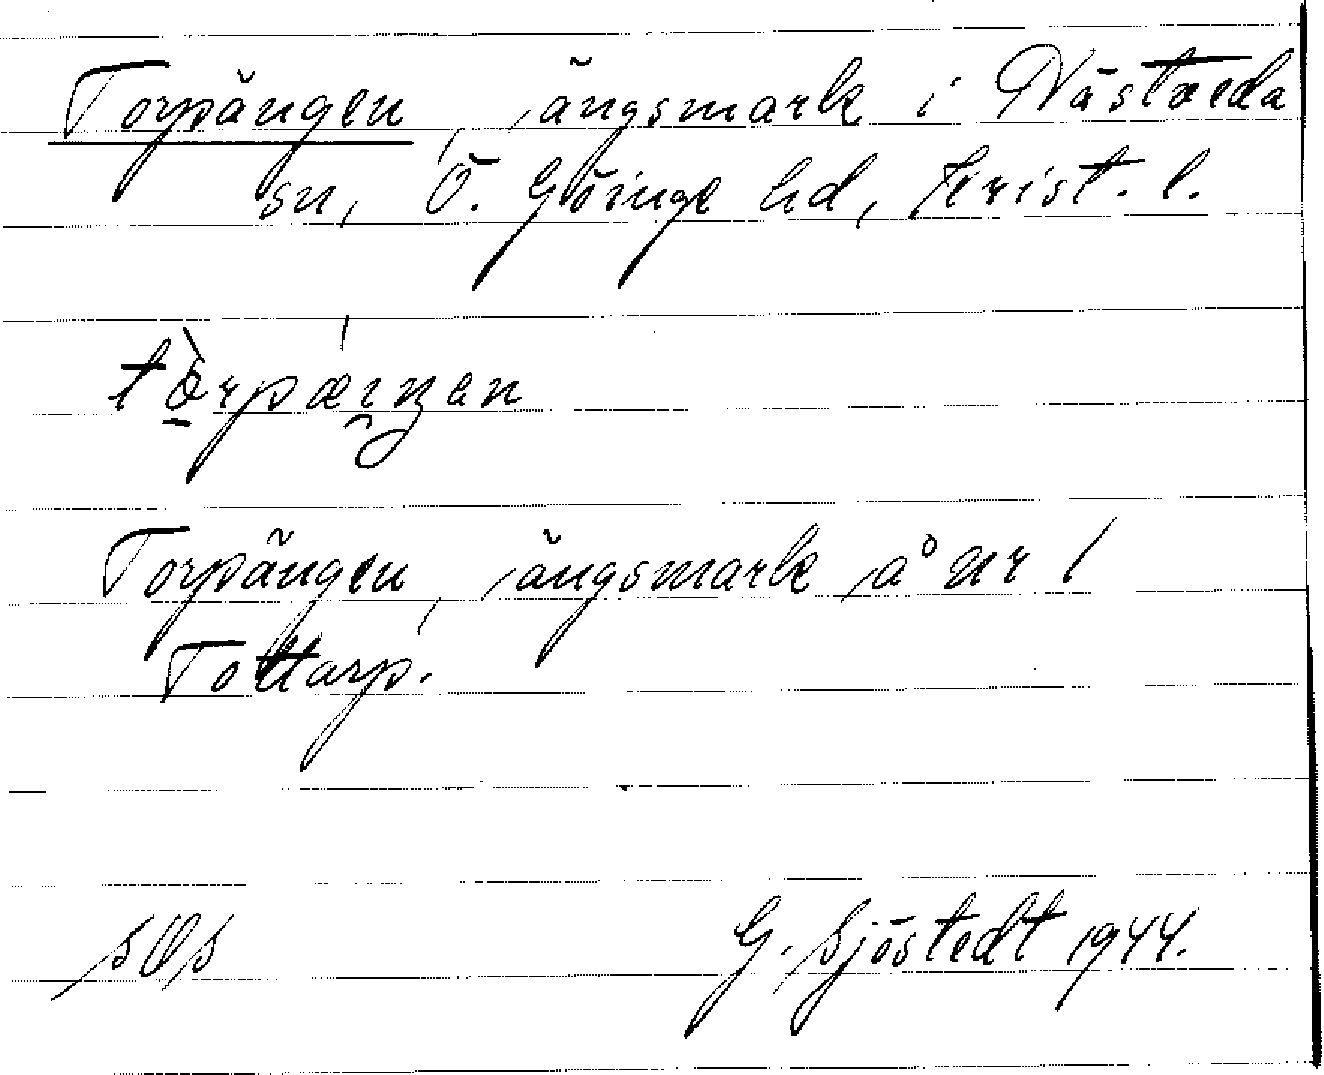 Torpängen, ängsmark i Nästveda
sn, Ö. Göinge hd, Krist. l.
Torpängen, ängsmark å nr 1
Tottarp.
G. Sjöstedt 1944.